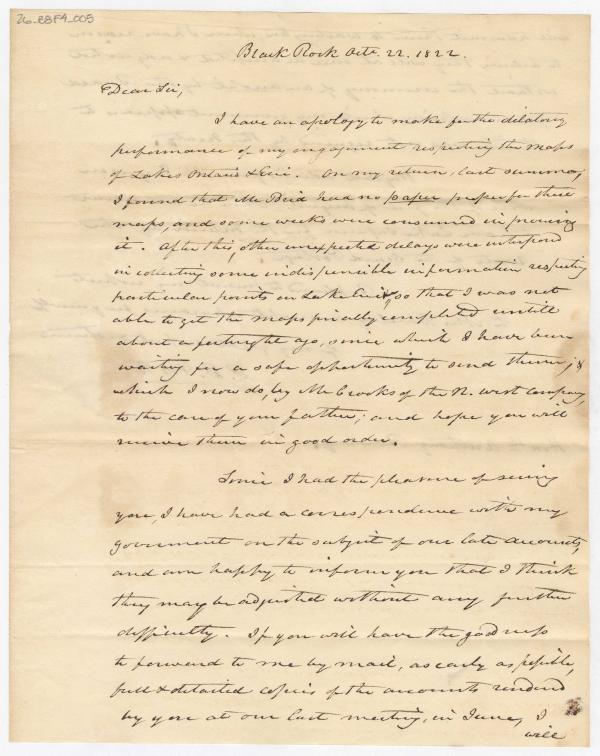 26.RBF4_005
Black Rock Octr. 22. 1822.
Dear Sir,
I have an apology to make for the dilatory
performance of my engagement respecting the maps
of Lakes Ontario & Erie. On my return, last summer,
I found that Mr Bird had no paper proper for these
maps, and some weeks were consumed in procuring
it. After this, other unexpected delays were interposed
in collecting some indispensible information respecting
particular points on Lake Erie, so that I was not
able to get the maps finally completed untill
about a fortnight ago, since which I have been
waiting for a safe opportunity to send them; &
which I now do, by Mr Crooks of the N. west Company,
to the care of your father; and hope you will
receive them in good order.
Since I had the pleasure of seeing
you, I have had a correspondence with my
government on the subject of our late accounts,
and am happy to inform you that I think
they may be adjusted without any further
difficulty. If you will have the goodness
to forward to me by mail, as early as possible,
full & detailed copies of the accounts rendered
by you at our last meeting, in June, I
will